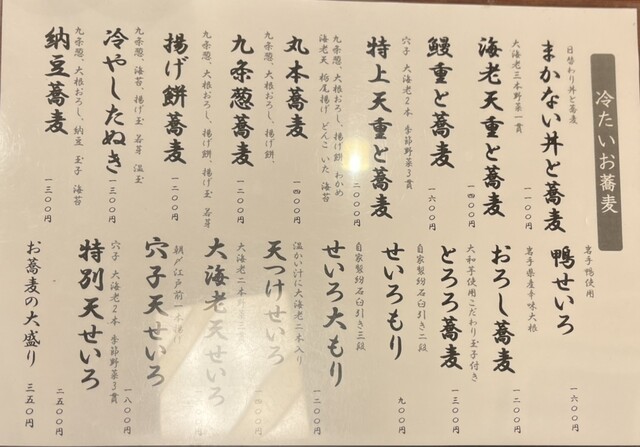 冷たいお蕎麦
日替わり丼と蕎麦
まかない丼と蕎麦
一一〇〇円
大海老二本野菜一貫
海老天重と蕎麦
一四〇〇円
鰻重と蕎麦
一六〇〇円
穴子 大海老2本 季節野菜3貫
特上天重と蕎麦
二〇〇〇円
九条葱、大根おろし、揚げ餅、わかめ
海老天 栃尾揚げ どんこ いた 海苔
丸本蕎麦
一四〇〇円
九条葱、大根おろし、揚げ餅、
九条葱蕎麦
一二〇〇円
九条葱、大根おろし、揚げ餅、揚げ玉 若芽
揚げ餅蕎麦
一二〇〇円
九条葱、海苔、揚げ玉 若芽 温玉
冷やしたぬき
一三〇〇円
九条葱、大根おろし、納豆 玉子 海苔
納豆蕎麦
一三〇〇円
岩手鴨使用
鴨せいろ
一六〇〇円
岩手県産辛味大根
おろし蕎麦
一二〇〇円
大和芋使用こだわり玉子付き
とろろ蕎麦
一三〇〇円
自家製粉石臼引き二段
せいろもり
九〇〇円
自家製粉石臼引き三段
せいろ大もり
一二〇〇円
温かい汁に大海老二本入り
天つけせいろ
大海老二本野菜三貫
大海老天せいろ
朝〆江戸前一本揚げ
穴子天せいろ
一八〇〇円
穴子 大海老2本 季節野菜3貫
特別天せいろ
二五〇〇円
お蕎麦の大盛り
三五〇円